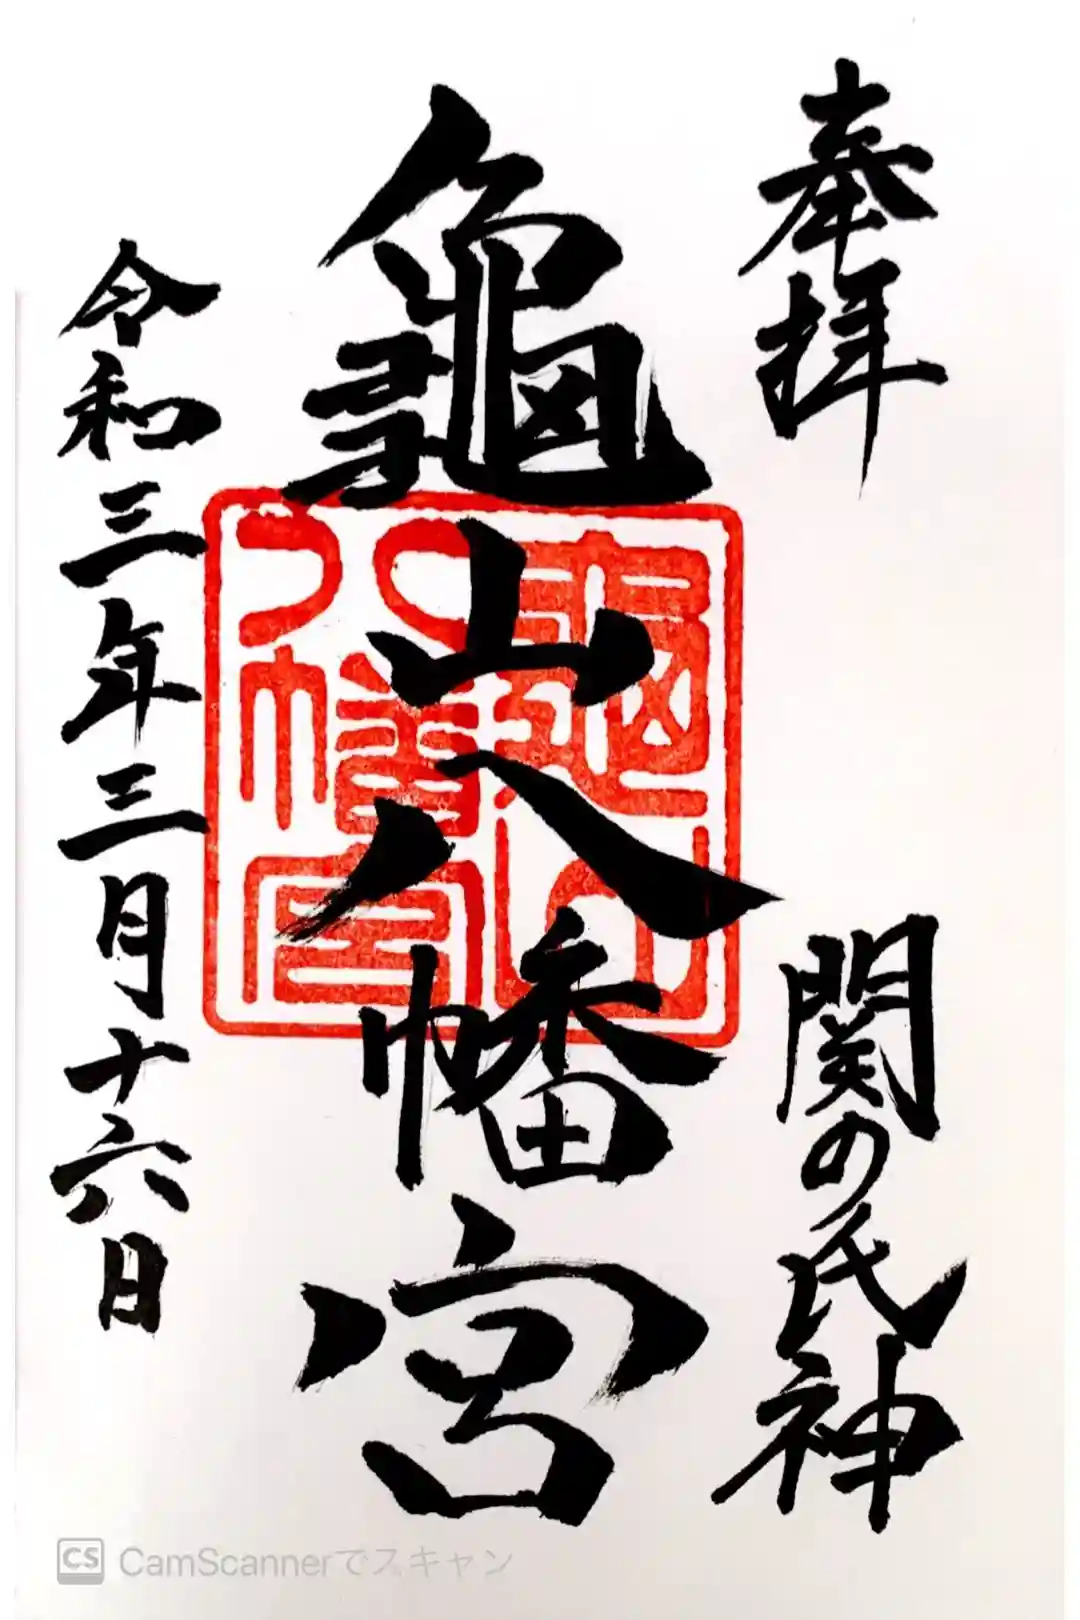 奉拝
関の氏神
龜山八幡宮
龜山
八幡宮
令和三年三月十六日
CS CamScannerでスキャン